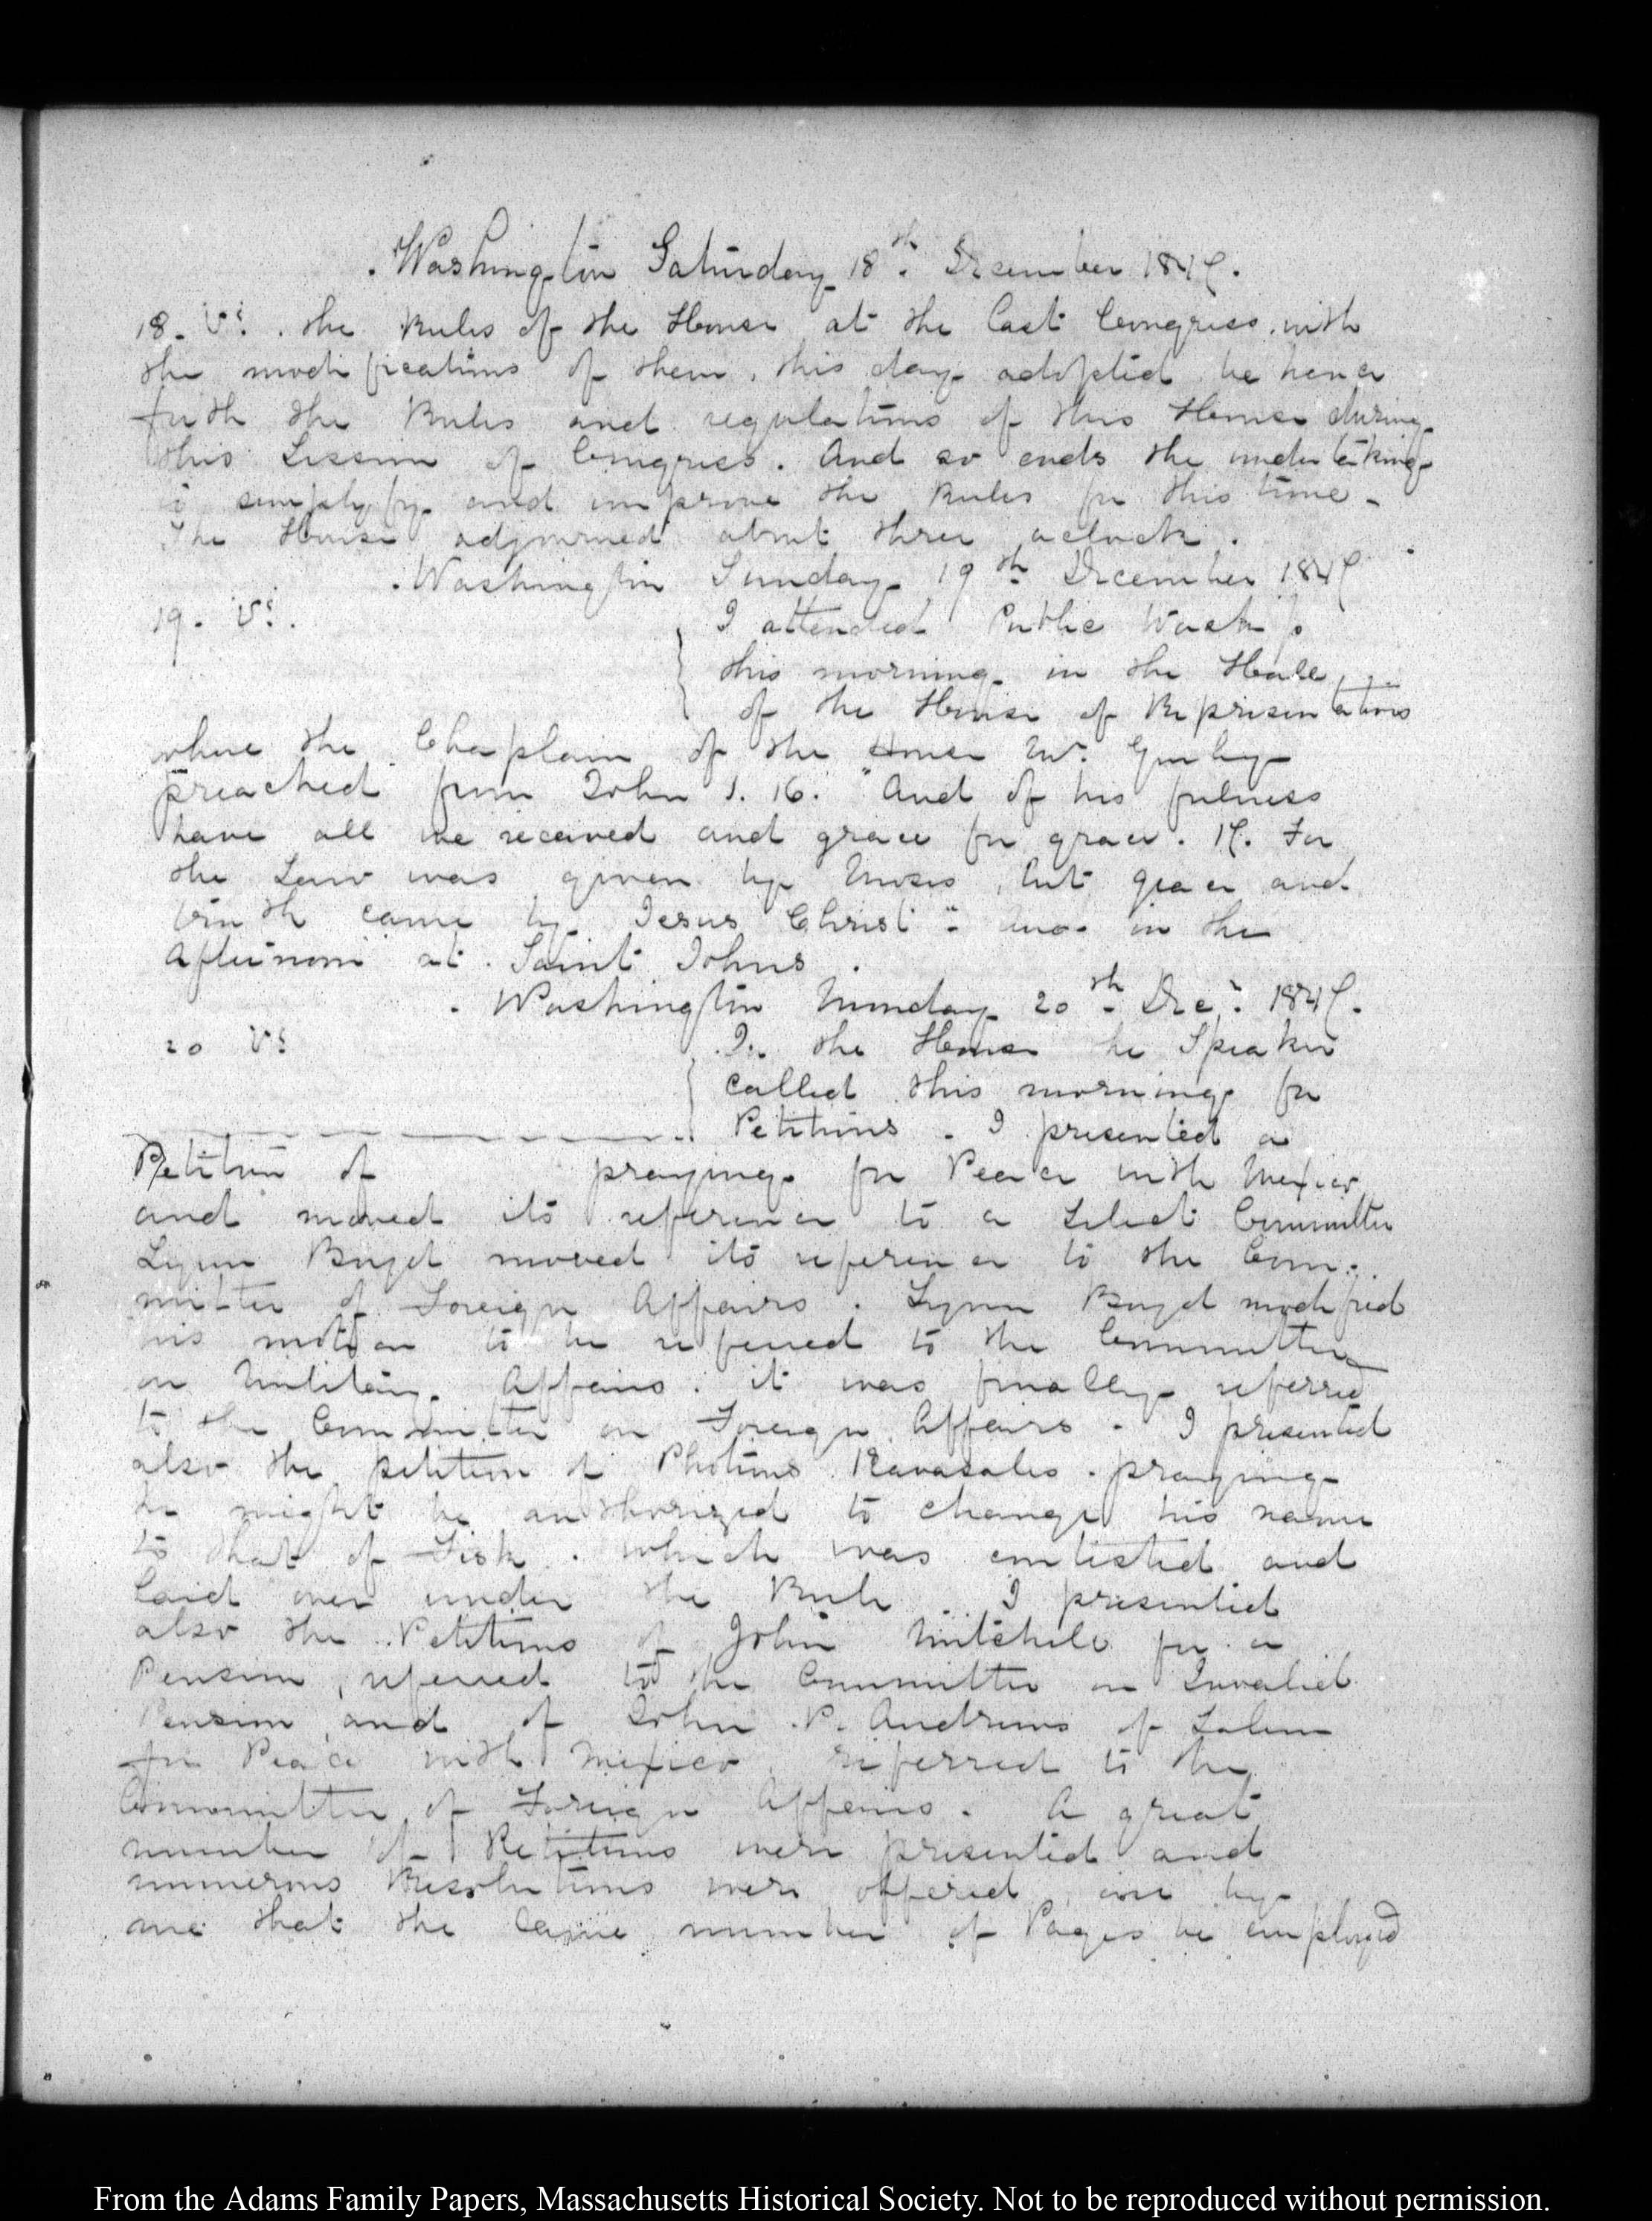 . Washington Saturday 18.th December 1847.
18. V.s . the Rules of the House at the last Congress with
the modifications of them, this day adopted be hence
forth the Rules and regulations of this House during
this Session of Congress. And so ends the undertaking
to simplify and improve the Rules for this time _
The House adjourned about three oclock .
. Washington Sunday 19.th December 1847
19. V.s .
I attended Public Worship
this morning in the Hall
of the House of Representatives
where the Chaplain of the House Mr. Gurley
preached from John 1. 16. "And of his fulness
have all we received and grace for grace. 17. For
the Law was given by Moses, but grace and
truth came by Jesus Christ" and in the
Afternoon at Saint Johns .
. Washington Monday 20.th Dec.r 1847.
20 V.s
In the House the Speaker
called this morning for
Petitions . I presented a
Petition of praying for Peace with Mexico
and moved its reference to a Select Committee
Lynn Boyd moved its reference to the Com.
mittee of Foreign Affairs . Lynn Boyd modified
his motion to be referred to the Committee
on Military Affairs . it was finally referred
to the Committee on Foreign Affairs . I presented
also the petition of Photius Kavasales . praying
he might be authorized to change his name
to that of Fisk . which was contested and
laid over under the Rule . I presented
also the Petitions of John Mitchell for a
Pension, referred to the Committee on Invalid
Pension, and of John P. Andrews of Salem
for Peace with Mexico, referred to the
Committee of Foreign Affairs . A great
number of Petitions were presented and
numerous Resolutions were offered, one by
me that the same number of Pages be employed
From the Adams Family Papers, Massachusetts Historical Society. Not to be reproduced without permission.